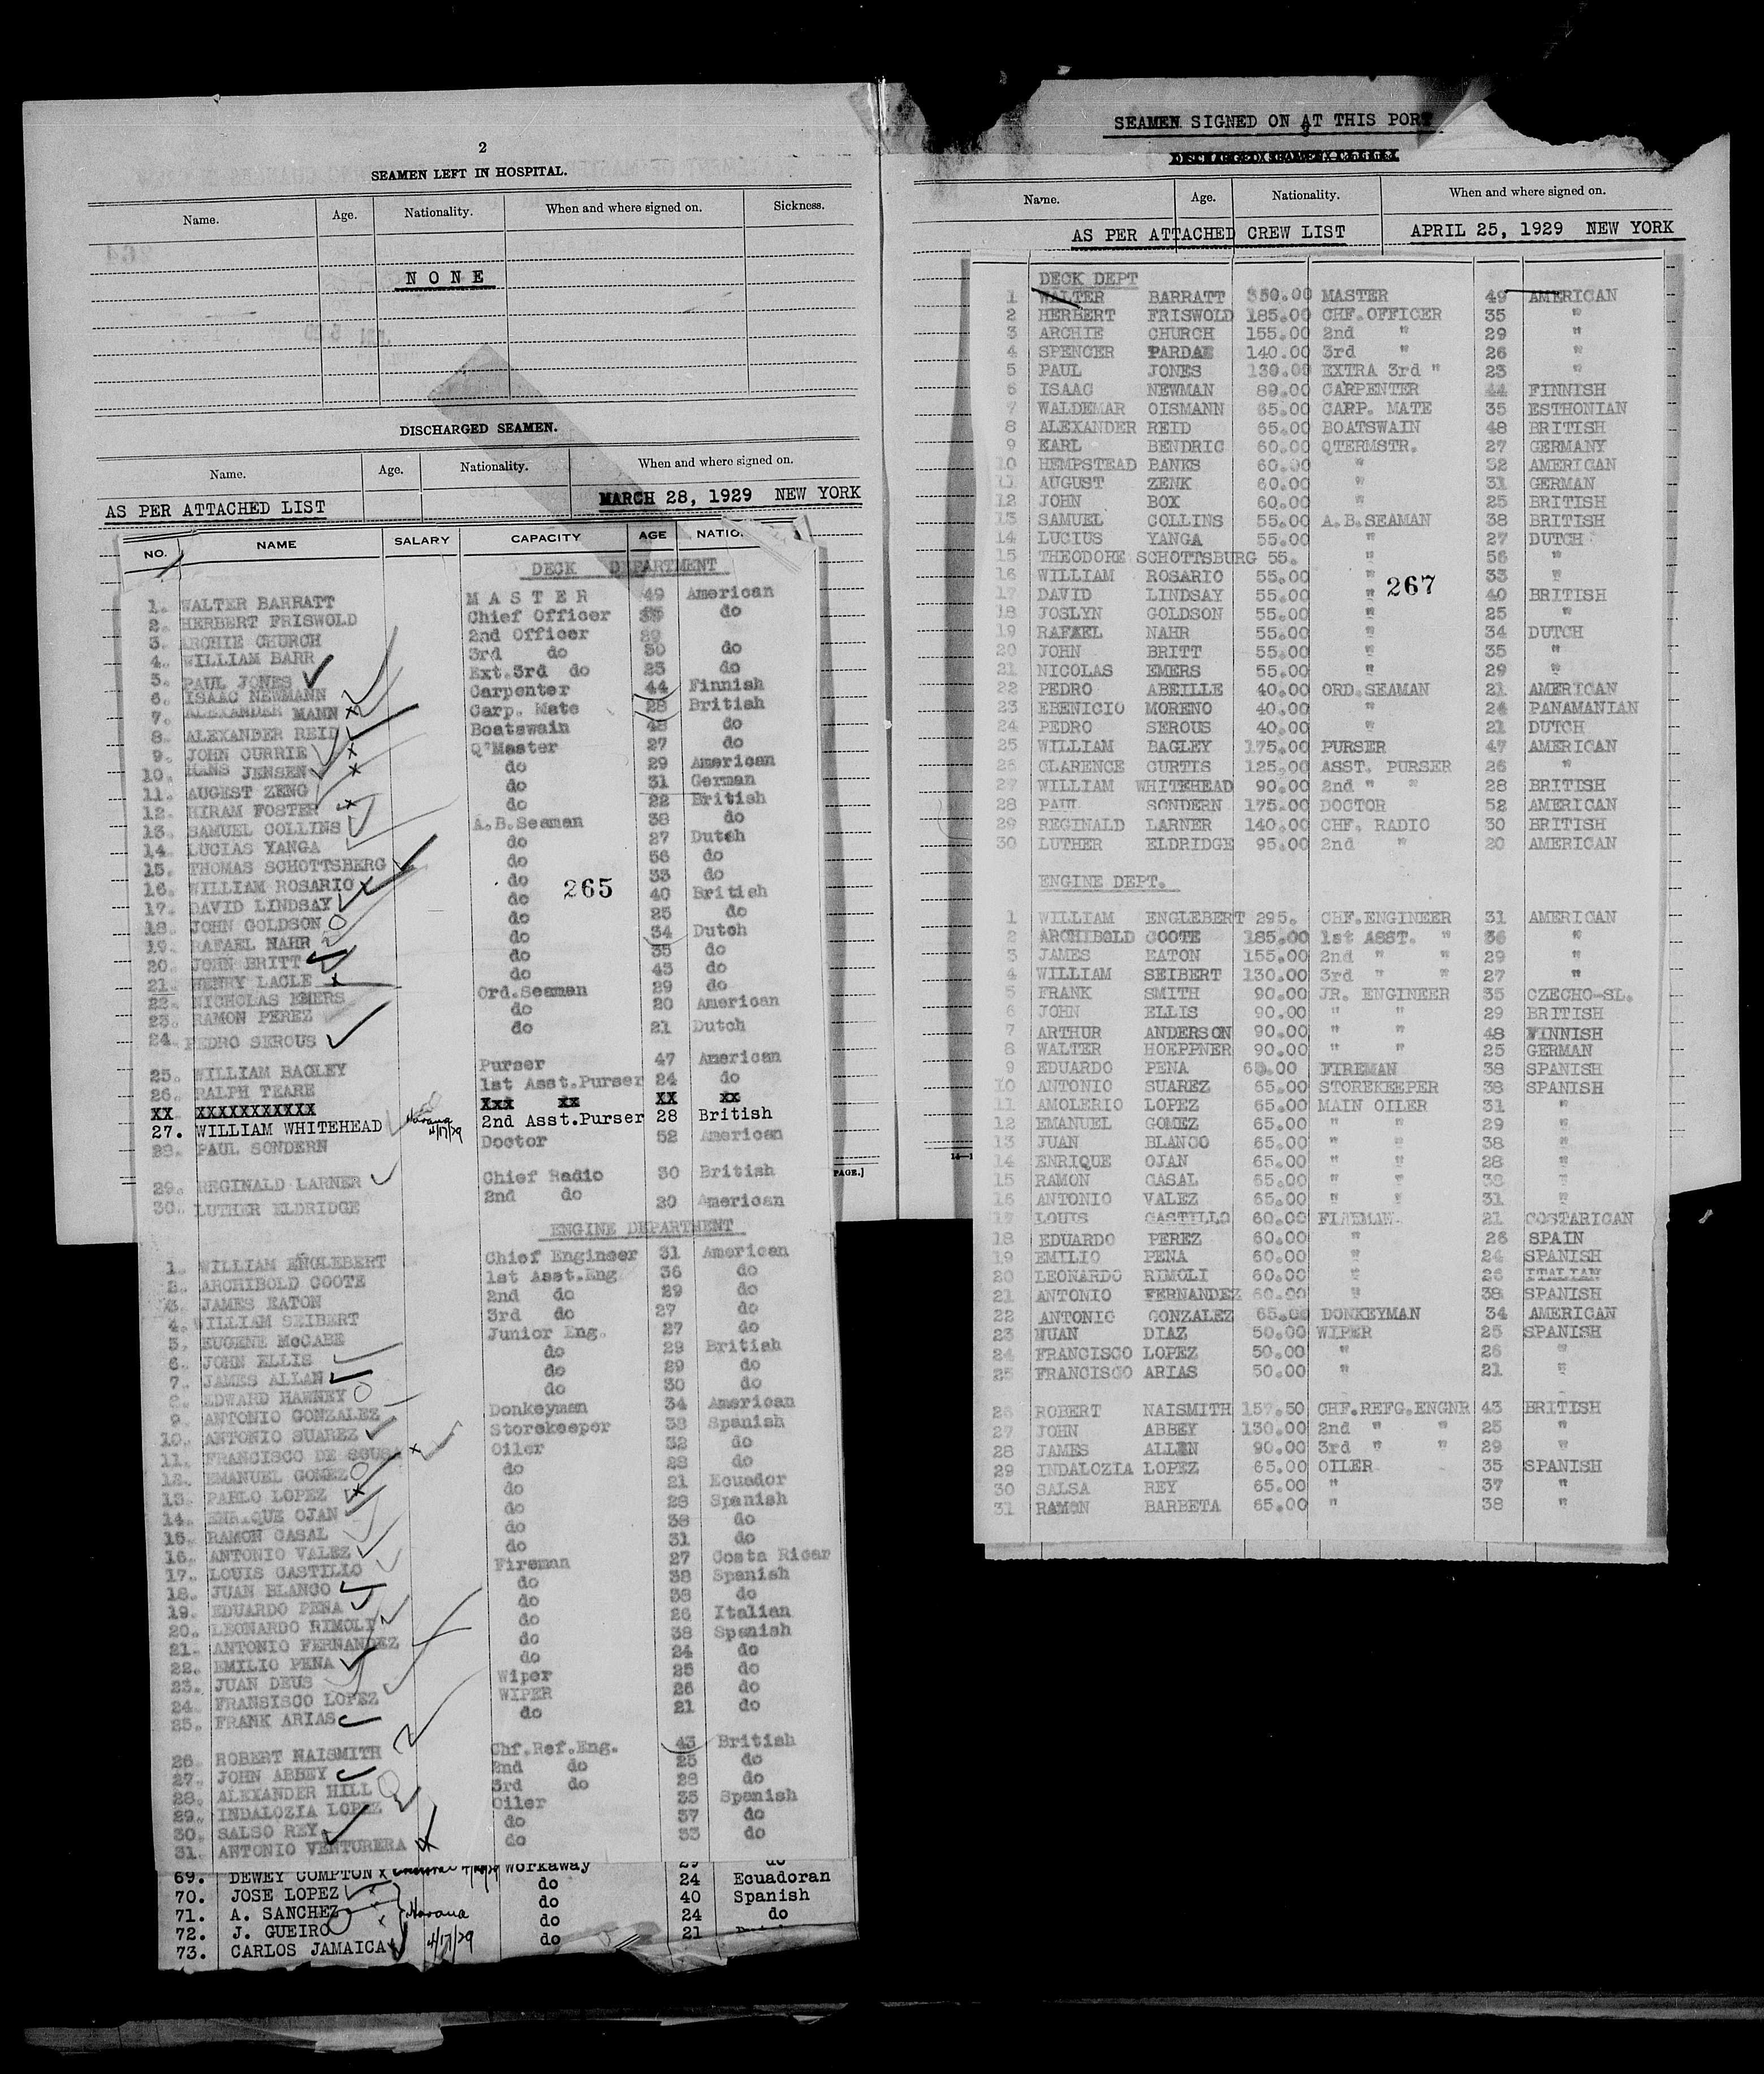 2
SEAMEN LEFT IN HOSPITAL.
Name. Age. Nationality. When and where signed on. Sickness.
NONE
DISCHARGED SEAMEN.
Name. Age. Nationality. When and where signed on.
AS PER ATTACHED LIST MARCH 28, 1929 NEW YORK
NO. NAME SALARY CAPACITY AGE NATIO.
DECK DEPARTMENT
1. WALTER BARRATT MASTER 49 American
2. HERBERT FRISWOLD Chief Officer 35 do
3. ARCHIE CHURCH 2nd Officer 29
4. WILLIAM BARR 3rd do 30 do
5. PAUL JONES Ext.3rd do 23 do
6. ISAAC NEWMANN Carpenter 44 Finnish
7. ALEXANDER MANN Carp. Mate 28 British
8. ALEXANDER REID Boatswain 48 do
9. JOHN CURRIE Q'Master 27 do
10. HANS JENSEN do 29 American
11. AUGEST ZENG do 31 German
12. HIRAM FOSTER do 22 British
13. SAMUEL COLLINS A.B.Seaman 38 do
14. LUCIAS YANGA do 27 Dutch
15. THOMAS SCHOTTSBERG do 56 do
16. WILLIAM ROSARIO do 33 do
265
17. DAVID LINDSAY do 40 British
18. JOHN GOLDSON do 25 do
19. RAFAEL NAHR do 34 Dutch
20. JOHN BRITT do 35 do
21. HENRY LACLE do 43 do
22. NICHOLAS EMERS Ord.Seaman 29 do
23. RAMON PEREZ do 20 American
24. PEDRO SEROUS do 21 Dutch
25. WILLIAM BAGLEY Purser 47 American
26. RALPH TEARE 1st Asst.Purser 24 do
XX XXXXXXXXXXX Xxx xx XX xx
27. WILLIAM WHITEHEAD Havana 4/17/29 2nd Asst.Purser 28 British
28. PAUL SONDERN Doctor 52 American
29. REGINALD LARNER Chief Radio 30 British
30. LUTHER ELDRIDGE 2nd do 20 American
ENGINE DEPARTMENT
1. WILLIAM ENGLEBERT Chief Engineer 31 American
2. ARCHIBOLD COOTE 1st Asst.Eng 36 do
3. JAMES EATON 2nd do 29 do
4. WILLIAM SEIBERT 3rd do 27 do
5. EUGENE McCABE Junior Eng. 27 do
6. JOHN ELLIS do 29 British
7. JAMES ALLAN do 29 do
8. EDWARD HAWNEY do 30 do
9. ANTONIO GONZALEZ Donkeyman 34 American
10. ANTONIO SUAREZ Storekeeper 38 Spanish
11. FRANCISCO DE SOUSA Oiler 32 do
12. EMANUEL GOMEZ do 28 do
13. PABLO LOPEZ do 21 Ecuador
14. ENRIQUE OJAN do 28 Spanish
15. RAMON CASAL do 38 do
16. ANTONIO VALEZ do 31 do
17. LOUIS CASTILLO Fireman 27 Costa Rican
18. JUAN BLANCO do 38 Spanish
19. EDUARDO PENA do 38 do
20. LEONARDO RIMOLI do 26 Italian
21. ANTONIO FERNANDEZ do 38 Spanish
22. EMILIO PENA do 24 do
23. JUAN DEUS Wiper 25 do
24. FRANSISCO LOPEZ WIPER 26 do
25. FRANK ARIAS do 21 do
26. ROBERT NAISMITH Chf.Ref.Eng. 43 British
27. JOHN ABBEY 2nd do 25 do
28. ALEXANDER HILL 3rd do 28 do
29. INDALOZIA LOPEZ Oiler 35 Spanish
30. SALSO REY do 37 do
31. ANTONIO VENTURERA do 33 do
69. DEWEY COMPTON Workaway 29 do
70. JOSE LOPEZ do 24 Ecuadoran
71. A. SANCHEZ Havana do 40 Spanish
72. J. GUEIRO do 24 do
73. CARLOS JAMAICA 4/17/29 do 21
PAGE.]
SEAMEN SIGNED ON AT THIS PORT
3
Name. Age. Nationality. When and where signed on.
AS PER ATTACHED CREW LIST APRIL 25, 1929 NEW YORK
DECK DEPT
1 WALTER BARRATT 350.00 MASTER 49 AMERICAN
2 HERBERT FRISWOLD 185.00 CHF.OFFICER 35 "
3 ARCHIE CHURCH 155.00 2nd " 29 "
4 SPENCER PARDAE 140.00 3rd " 26 "
5 PAUL JONES 130.00 EXTRA 3rd " 23 "
6 ISAAC NEWMAN 89.00 CARPENTER 44 FINNISH
7 WALDEMAR OISMANN 65.00 CARP. MATE 35 ESTHONIAN
8 ALEXANDER REID 65.00 BOATSWAIN 48 BRITISH
9 EARL BENDRIC 60.00 QTERMSTR. 27 GERMANY
10 HEMPSTEAD BANKS 60.00 " 32 AMERICAN
11 AUGUST ZENK 60.00 " 31 GERMAN
12 JOHN BOX 60.00 " 25 BRITISH
13 SAMUEL COLLINS 55.00 A.B.SEAMAN 38 BRITISH
14 LUCIUS YANGA 55.00 " 27 DUTCH
15 THEODORE SCHOTTSBURG 55. " 56 "
16 WILLIAM ROSARIO 55.00 " 33 "
267
17 DAVID LINDSAY 55.00 " 40 BRITISH
18 JOSLYN GOLDSON 55.00 " 25 "
19 RAFAEL NAHR 55.00 " 34 DUTCH
20 JOHN BRITT 55.00 " 35 "
21 NICOLAS EMERS 55.00 " 29 "
22 PEDRO ABEILLE 40.00 ORD.SEAMAN 21 AMERICAN
23 EBENICIO MORENO 40.00 " 24 PANAMANIAN
24 PEDRO SEROUS 40.00 " 21 DUTCH
25 WILLIAM BAGLEY 175.00 PURSER 47 AMERICAN
26 CLARENCE CURTIS 125.00 ASST. PURSER 26 "
27 WILLIAM WHITEHEAD 90.00 2nd " " 28 BRITISH
28 PAUL SONDERN 175.00 DOCTOR 52 AMERICAN
29 REGINALD LARNER 140.00 CHF. RADIO 30 BRITISH
30 LUTHER ELDRIDGE 95.00 2nd " 20 AMERICAN
ENGINE DEPT.
1 WILLIAM ENGLEBERT 295. CHF.ENGINEER 31 AMERICAN
2 ARCHIBOLD COOTE 185.00 1st ASST. " 36 "
3 JAMES EATON 155.00 2nd " " 29 "
4 WILLIAM SEIBERT 130.00 3rd " " 27 "
5 FRANK SMITH 90.00 JR. ENGINEER 35 CZECHO-SL.
6 JOHN ELLIS 90.00 " " 29 BRITISH
7 ARTHUR ANDERSON 90.00 " " 48 FINNISH
8 WALTER HOEPPNER 90.00 " " 25 GERMAN
9 EDUARDO PENA 60.00 FIREMAN 38 SPANISH
10 ANTONIO SUAREZ 65.00 STOREKEEPER 38 SPANISH
11 AMOLERIO LOPEZ 65.00 MAIN OILER 31 "
12 EMANUEL GOMEZ 65.00 " " 29 "
13 JUAN BLANCO 65.00 " " 38 "
14 ENRIQUE OJAN 65.00 " " 28 "
15 RAMON CASAL 65.00 " " 38 "
16 ANTONIO VALEZ 65.00 " " 31 "
17 LOUIS CASTILLO 60.00 FIREMAN. 21 COSTARICAN
18 EDUARDO PEREZ 60.00 " 26 SPAIN
19 EMILIO PENA 60.00 " 24 SPANISH
20 LEONARDO RIMOLI 60.00 " 26 ITALIAN
21 ANTONIO FERNANDEZ 60.00 " 38 SPANISH
22 ANTONIO GONZALEZ 65.00 DONKEYMAN 34 AMERICAN
23 NUAN DIAZ 50.00 WIPER 25 SPANISH
24 FRANCISCO LOPEZ 50.00 " 26 "
25 FRANCISCO ARIAS 50.00 " 21 "
26 ROBERT NAISMITH 157.50 CHF.REFG.ENGNR 43 BRITISH
27 JOHN ABBEY 130.00 2nd " " 25 "
28 JAMES ALLEN 90.00 3rd " " 29 "
29 INDALOZIA LOPEZ 65.00 OILER 35 SPANISH
30 SALSA REY 65.00 " 37 "
31 RAMON BARBETA 65.00 " 38 "